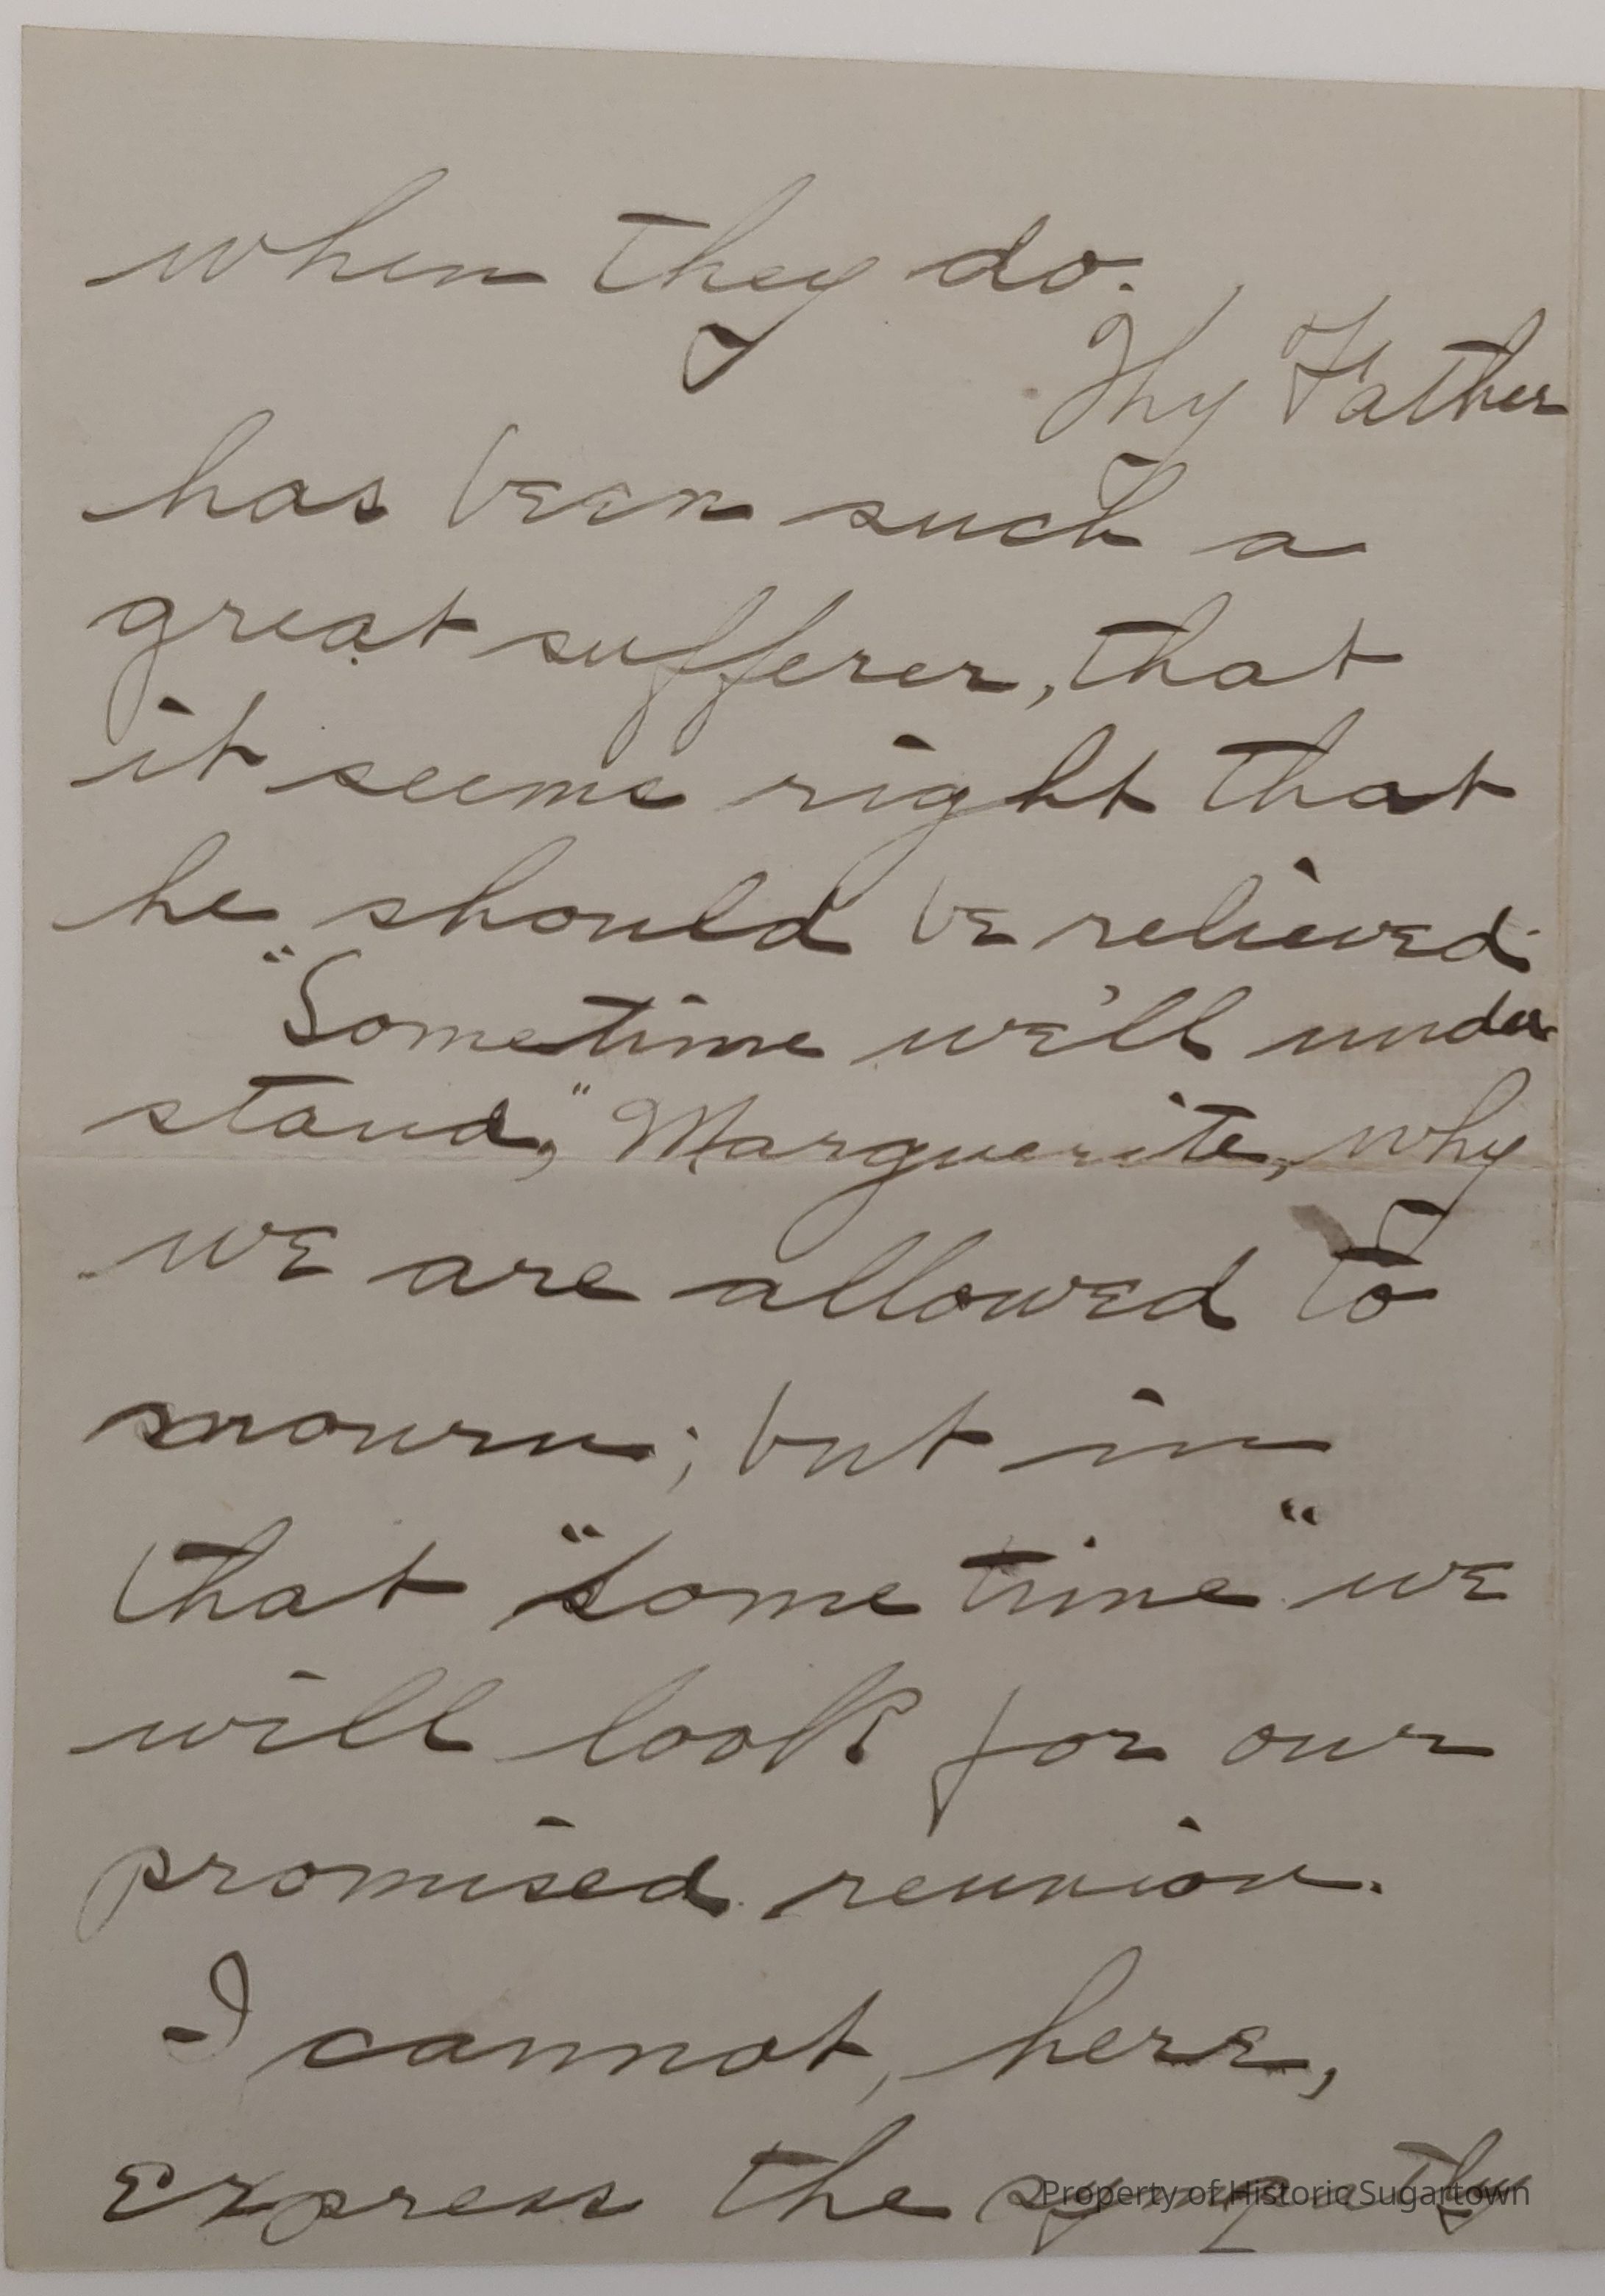 when they do.
Thy Father
has been such a
great sufferer, that
it seems right that
he should be relieved.
"Sometime we'll under
stand," Marguerite, why
we are allowed to
mourn; but in
that "some time" we
will look for our
promised reunion.
I cannot, here,
express the sympathy
Property of Historic Sugartown